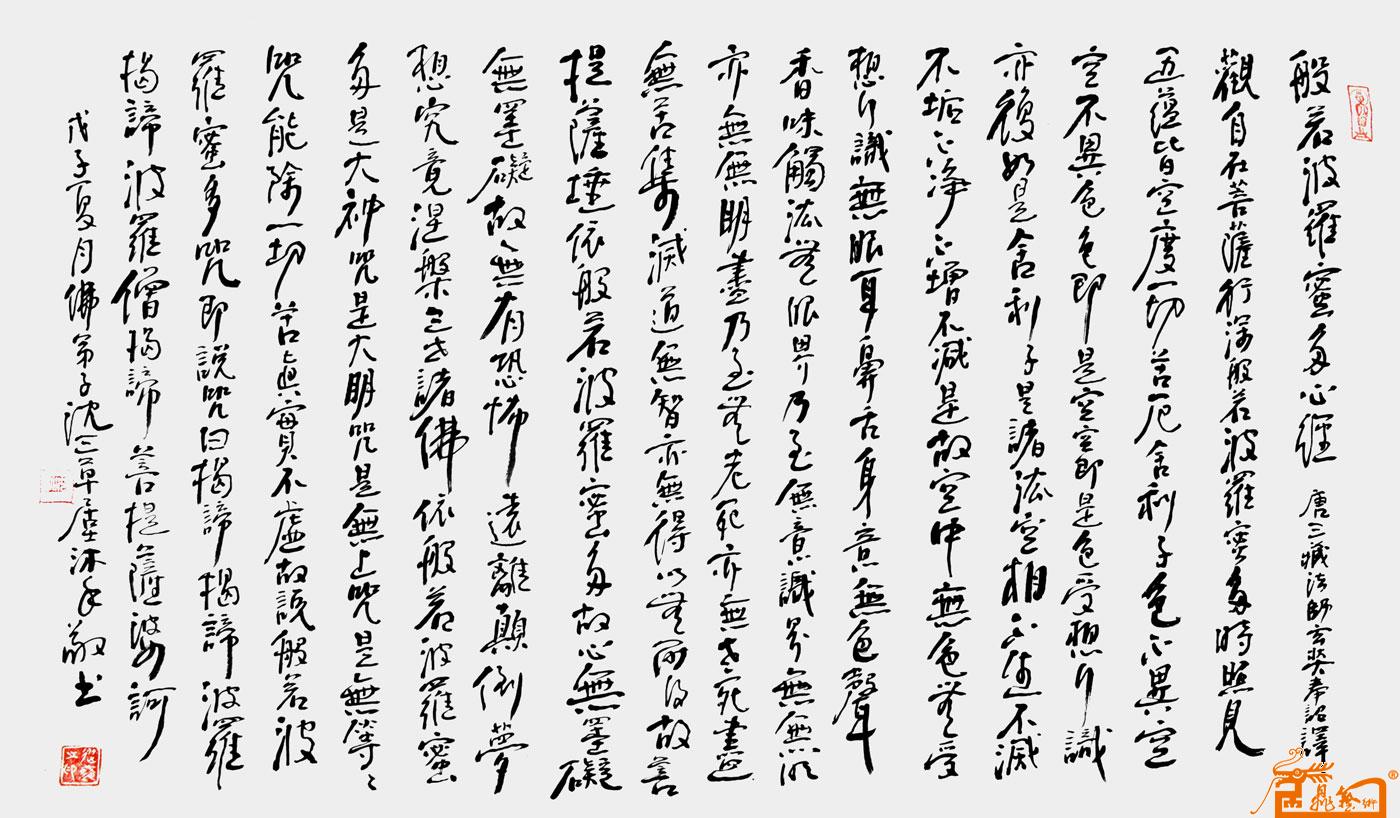 般若波羅蜜多心經 唐三藏法師玄奘奉詔譯
觀自在菩薩行深般若波羅蜜多時照見
五蘊皆空度一切苦厄舍利子色不異空
空不異色色即是空空即是色受想行識
亦復如是舍利子是諸法空相不生不滅
不垢不淨不增不減是故空中無色無受
想行識無眼耳鼻舌身意無色聲
香味觸法無眼界乃至無意識界無無明
亦無無明盡乃至無老死亦無老死盡
無苦集滅道無智亦無得以無所得故菩
提薩埵依般若波羅蜜多故心無罣礙
無罣礙故無有恐怖遠離顛倒夢
想究竟涅槃三世諸佛依般若波羅蜜
多是大神咒是大明咒是無上咒是無等々
咒能除一切苦真實不虛故說般若波
羅蜜多咒即說咒曰揭諦揭諦波羅
揭諦波羅僧揭諦菩提薩婆訶
戊子夏月佛弟子沈三草沐手敬書